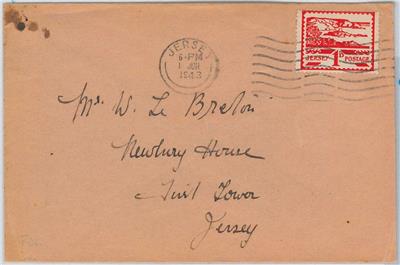 JERSEY
6-PM
1 JUN
1943
1D
JERSEY POSTAGE
Mr. W. Le Breton
Newbury House
First Tower
Jersey